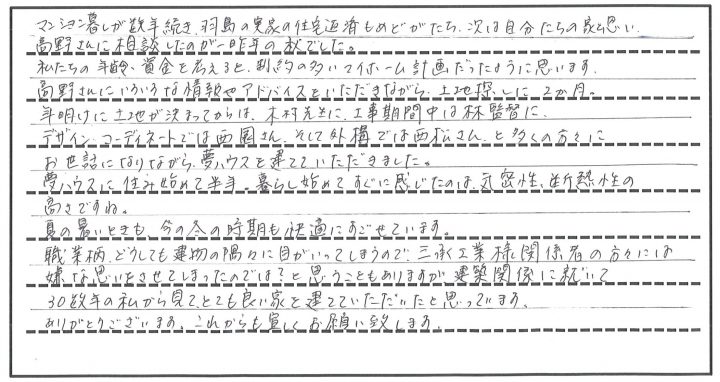 マンション暮しが数年続き、羽島の実家の住宅返済もめどがたち、次は自分たちの家と思い、
高野さんに相談したのが一昨年の秋でした。
私たちの年齢、資金を考えると、制約の多いマイホーム計画だったように思います。
高野さんにいろいろな情報やアドバイスをいただきながら、土地探しに2か月。
年明けに土地が決まってからは、木村先生に、工事期間中は林監督に、
デザイン・コーディネートでは西園さん、そして外構では西松さん、と多くの方々に
お世話になりながら、夢ハウスを建てていただきました。
夢ハウスに住み始めて半年。暮らし始めてすぐに感じたのは、気密性、断熱性の
高さですね。
夏の暑いときも、今の冬の時期も快適にすごせています。
職業柄、どうしても建物の隅々に目がいってしまうので、三承工業様、関係者の方々には
嫌な思いをさせてしまったのでは?と思うこともありますが、建築関係に就いて
30数年の私から見て、とても良い家を建てていただいたと思っています。
ありがとうございます。これからも宜しくお願い致します。